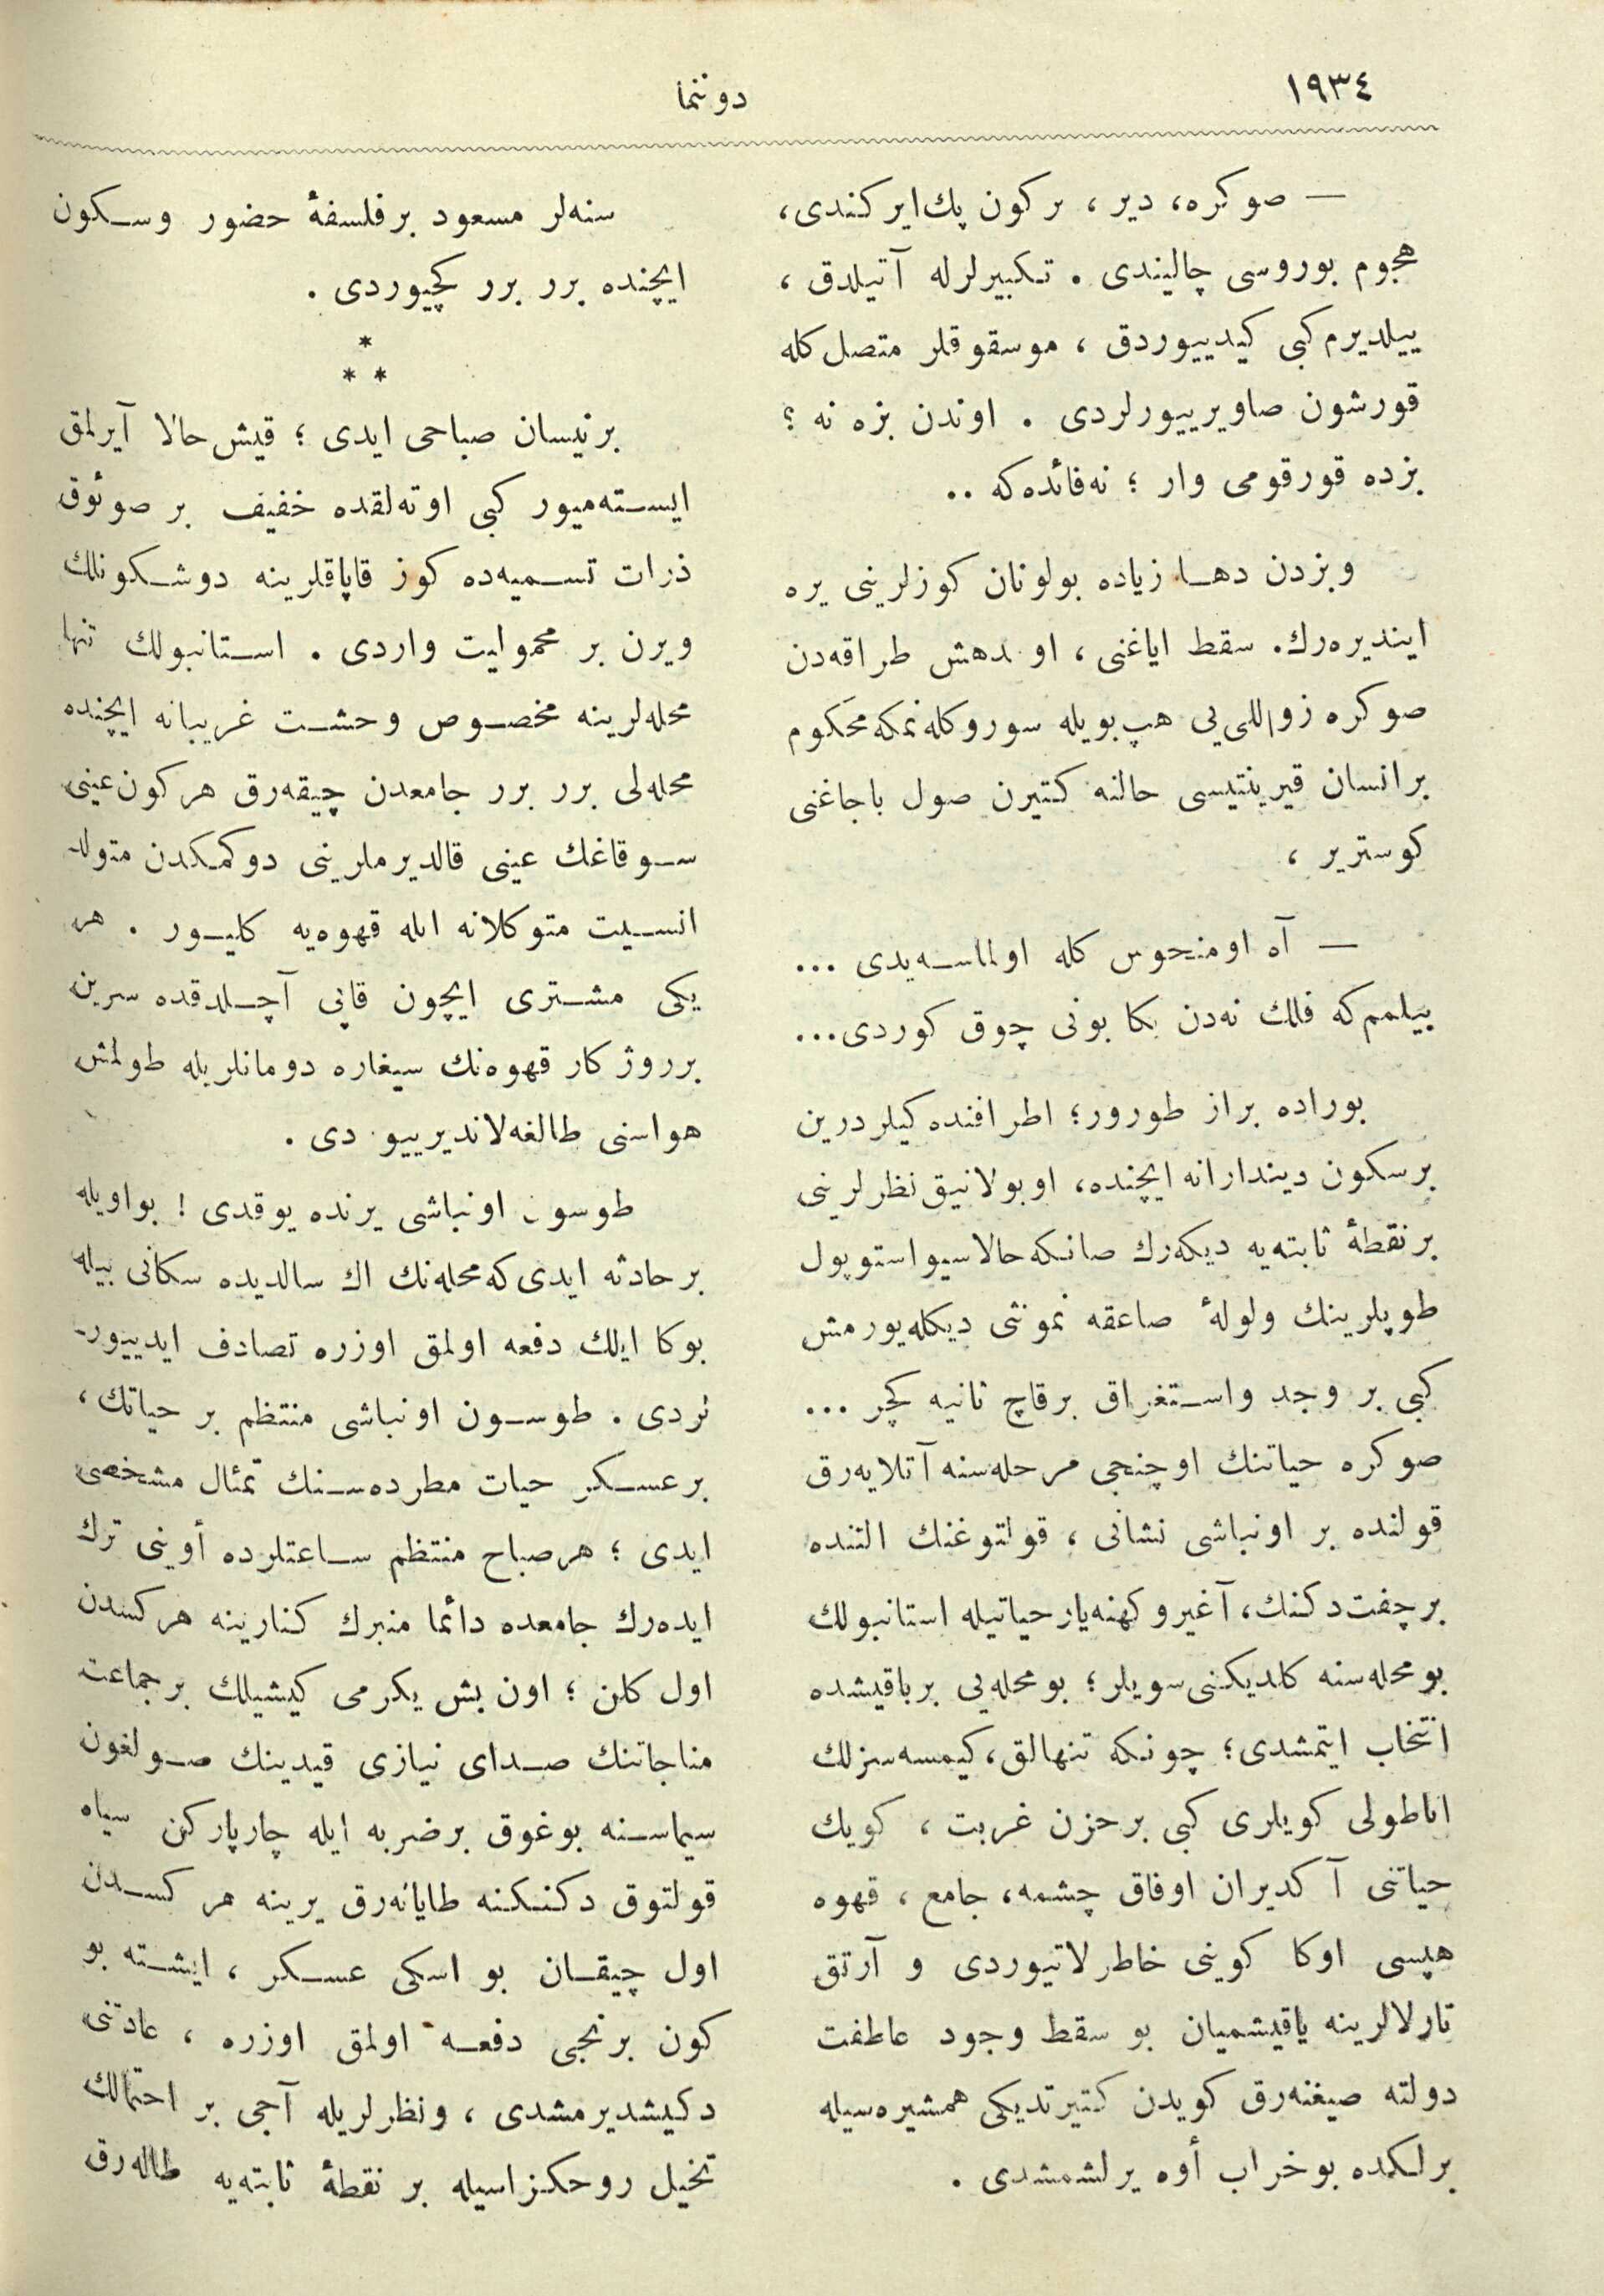 ١٩٣٤
دوننما
— صوكره، دير ، بر كون پك اير كندى،
هجوم بوروسى چاليندى . تكبيرلرله آتيلدق ،
ييلديرم كبى كيدييوردق ، موسقوقلر متصل كله
قورشون صاويرييورلردى . اوندن بزه نه ؟
بزده قورقومى وار ؛ نه فائده كه ..
وبزدن دهــا زياده بولونان كوزلرينى يره
اينديره رك. سقط اياغنى ، او مدهش طراقه دن
صوكره زواللى يى هپ بويله سوروكله نمكه محكوم
بر انسان قيرينتيسى حالنه كتيرن صول باجاغنى
كوسترير ،
— آه او منحوس كله اولماســه يدى ...
بيلمم كه فلك نه دن بكا بونى چوق كوردى...
بوراده براز طورور؛ اطرافنده كيلر درين
بر سكون ديندارانه ايچنده، او بولانيق نظرلرينى
بر نقطهٔ ثابته يه ديكه رك صانكه حالا سيواستوپول
طوپلرينك ولولهٔ صاعقه نمونثى ديكله يورمش
كبى بر وجد واســتغراق برقاچ ثانيه كچر ...
صوكره حياتنك اوچنجى مرحله سنه آتلايه رق
قولنده بر اونباشى نشانى ، قولتوغنك التنده
بر چفت دكنك، آغير و كهنه يار حياتيله استانبولك
بو محله سنه كلديكنى سويلر؛ بو محله يى بر باقيشده
انتخاب ايتمشدى؛ چونكه تنهالق، كيمسه سزلك
اناطولى كويلرى كبى بر حزن غربت ، كويك
حياتنى آ كديران اوفاق چشمه، جامع ، قهوه
هپسى اوكا كوينى خاطرلاتيوردى و آرتق
تارلالرينه ياقيشميان بو سقط وجود عاطفت
دولته صيغنه رق كويدن كتيرتديكى همشيره سيله
برلكده بو خراب أوه يرلشمشدى .
سنه لر مسعود بر فلسفهٔ حضور وســكون
ايچنده برر برر كچيوردى .
*
* *
بر نيسان صباحى ايدى ؛ قيش حالا آيرلمق
ايســته ميور كبى اوته لقده خفيف بر صوئوق
ذرات تســميه ده كوز قاپاقلرينه دوشــكونلك
ويرن بر محموليت واردى . اســتانبولك تنها
محله لرينه مخصــوص وحشــت غريبانه ايچنده
محله لى برر برر جامعدن چيقه رق هر كون عينى
ســوقاغك عينى قالديرملرينى دوكمكدن متولد
انســيت متوكلانه ايله قهوه يه كليــور . هر
يكى مشــترى ايچون قاپى آچــلدقده سرين
بر روزكار قهوه نك سيغاره دومانلريله طولمش
هواسنى طالغه لانديرييو دى .
طوسون اونباشى يرنده يوقدى ! بو اويله
بر حادثه ايدى كه محله نك اك سالديده سكانى بيله
بوكا ايلك دفعه اولمق اوزره تصادف ايدييور-
لردى . طوســون اونباشى منتظم بر حياتك،
بر عســكر حيات مطرده ســنك تمثال مشخصى
ايدى ؛ هر صباح منتظم ســاعتلرده أوينى ترك
ايده رك جامعده دائما منبرك كنارينه هر كسدن
اول كلن ؛ اون بش يكرمى كيشيلك بر جماعت
مناجاتنك صــداى نيازى قيدينك صــولغون
سيماســنه بوغوق بر ضربه ايله چارپاركن سياه
قولتوق دكنــكنه طايانه رق يرينه هر كســدن
اول چيقــان بو اسكى عســكر ، ايشــته بو
كون برنجى دفعــه اولمق اوزره ، عادتنى
دكيشديرمشدى ، ونظرلريله آجى بر احتمالك
تخيل روحكزاسيله بر نقطهٔ ثابته يه طاله رق